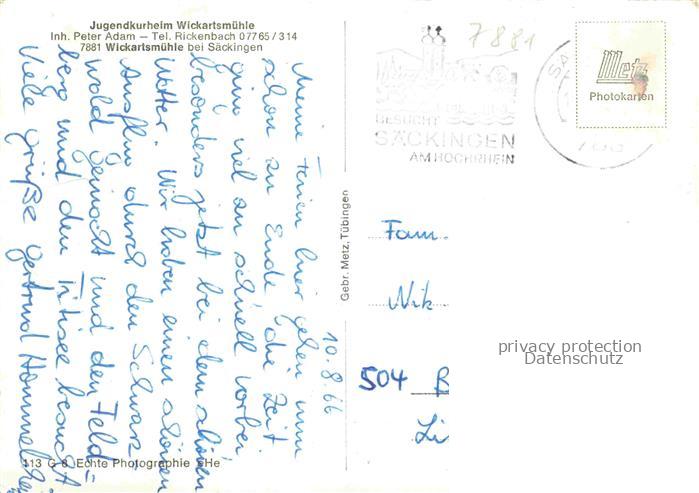 Jugendkurheim Wickartsmühle
Inh. Peter Adam — Tel. Rickenbach 07765/314
7881 Wickartsmühle bei Säckingen
10.8.66
Meine Ferien hier gehen nun
schon zu Ende, die Zeit
ging viel zu schnell vorbei,
besonders jetzt bei dem schönen
Wetter. Wir haben einen schönen
Ausflug durch den Schwarz
wald gemacht und den Feld=
berg und den Titisee besucht
Viele Grüße Gertrud
113 C 8 Echte Photographie
Gebr. Metz, Tübingen
7881
BESUCHT
SÄCKINGEN
AM HOCHRHEIN
Metz
Photokarten
Fam.
Nik
504 B
Li
privacy protection
Datenschutz